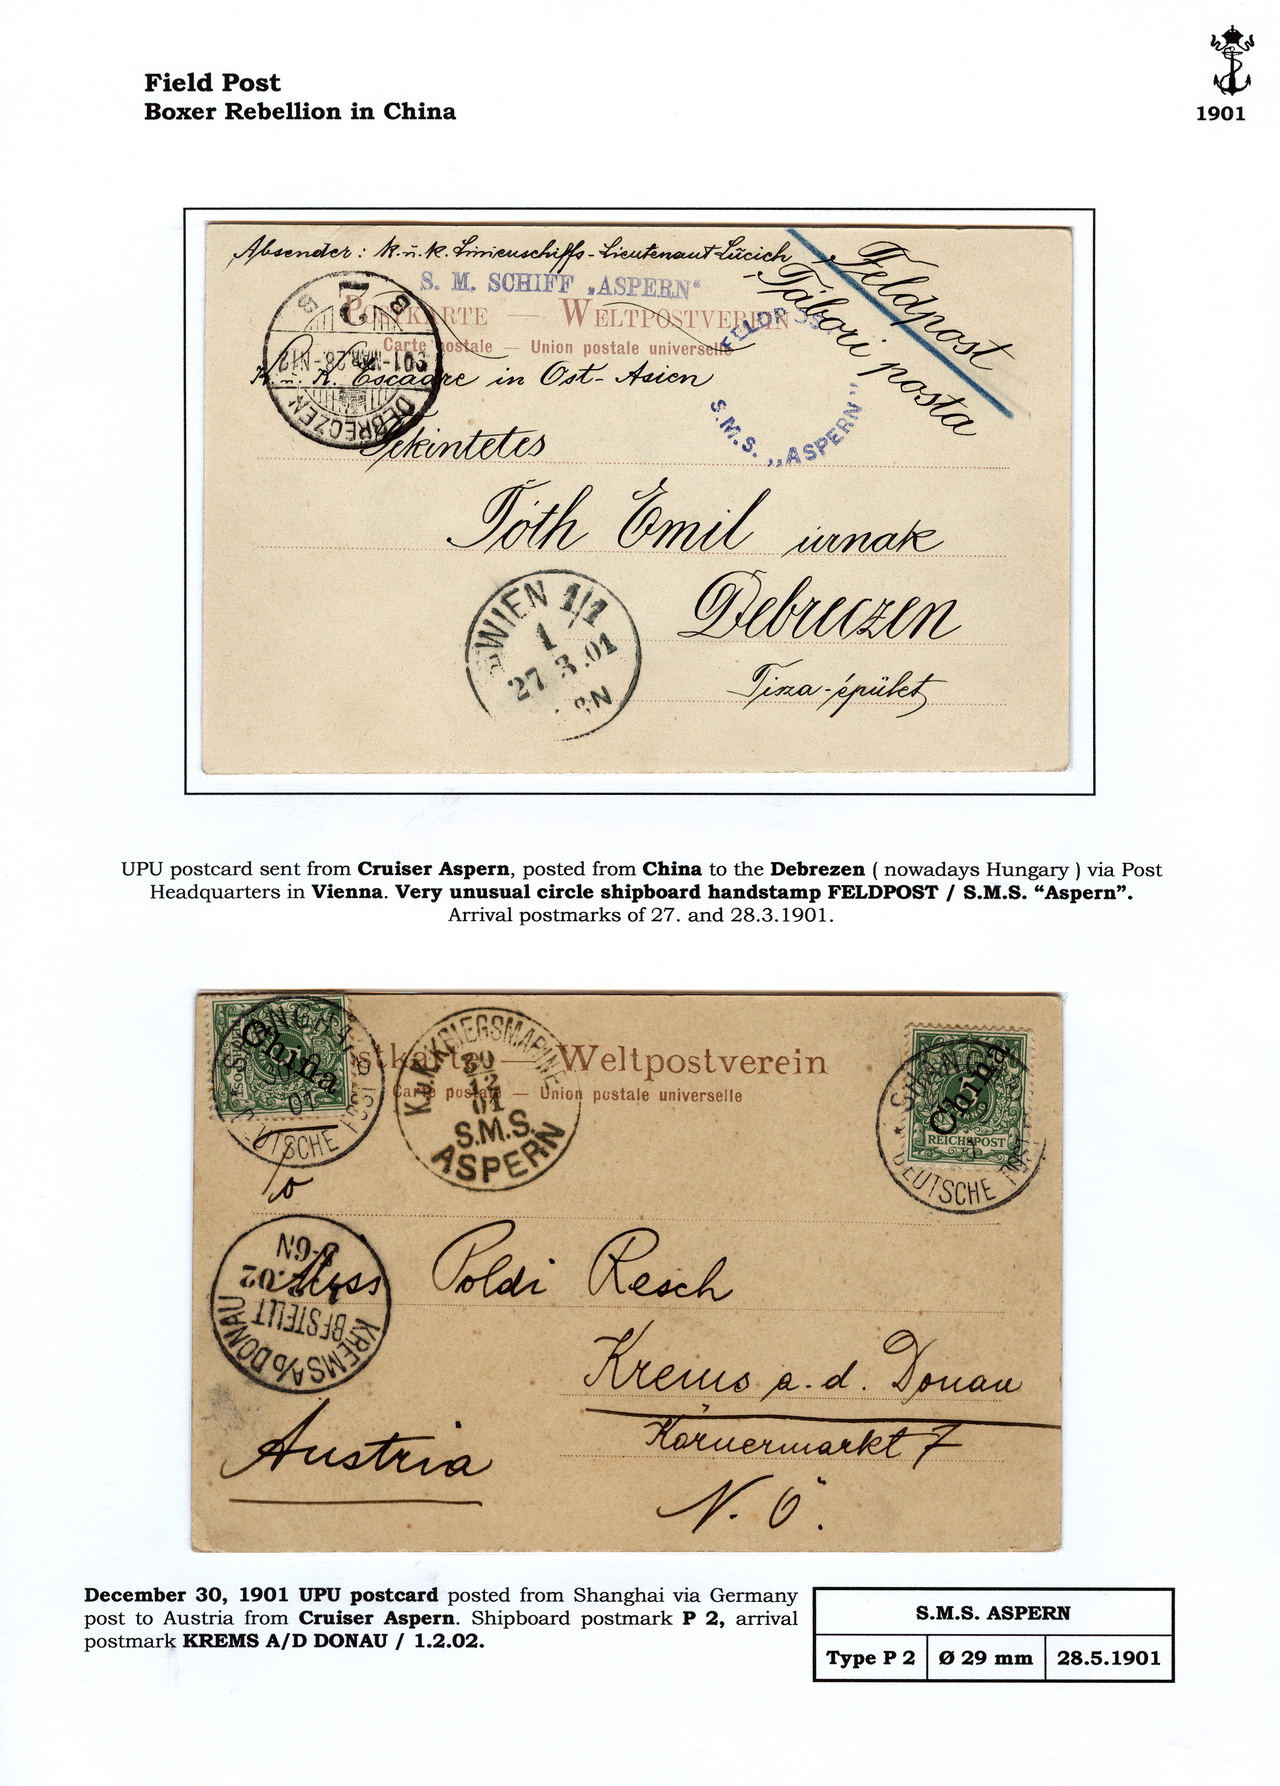 Field Post
Boxer Rebellion in China
1901
Absender: K. u. k. Linienschiffs-Lieutenant Lucich
S. M. SCHIFF „ASPERN“
Feldpost
Tábori posta
POSTKARTE — WELTPOSTVEREIN
Carte postale — Union postale universelle
K. u. K. Escadre in Ost-Asien
FELDPOST
S.M.S. „ASPERN"
2
B B
901-MAR.28-N12
DEBRECZEN
Tekintetes
Tóth Emil úrnak
Debreczen
Tisza-épület
WIEN 1/1
1
27.3.01
8.N
UPU postcard sent from Cruiser Aspern, posted from China to the Debrezen ( nowadays Hungary ) via Post
Headquarters in Vienna. Very unusual circle shipboard handstamp FELDPOST / S.M.S. “Aspern”.
Arrival postmarks of 27. and 28.3.1901.
China
SHANGHAI
01
DEUTSCHE POST
Postkarte — Weltpostverein
Carte postale — Union postale universelle
K.u.K.KRIEGSMARINE
30
12
01
S.M.S.
ASPERN
China
REICHSPOST
SHANGHAI
DEUTSCHE POST
KREMS A/D DONAU
BESTELLT
.02
Miss Poldi Resch
Krems a. d. Donau
Körnermarkt 7
Austria
N. Ö.
December 30, 1901 UPU postcard posted from Shanghai via Germany
post to Austria from Cruiser Aspern. Shipboard postmark P 2, arrival
postmark KREMS A/D DONAU / 1.2.02.
S.M.S. ASPERN
Type P 2 Ø 29 mm 28.5.1901